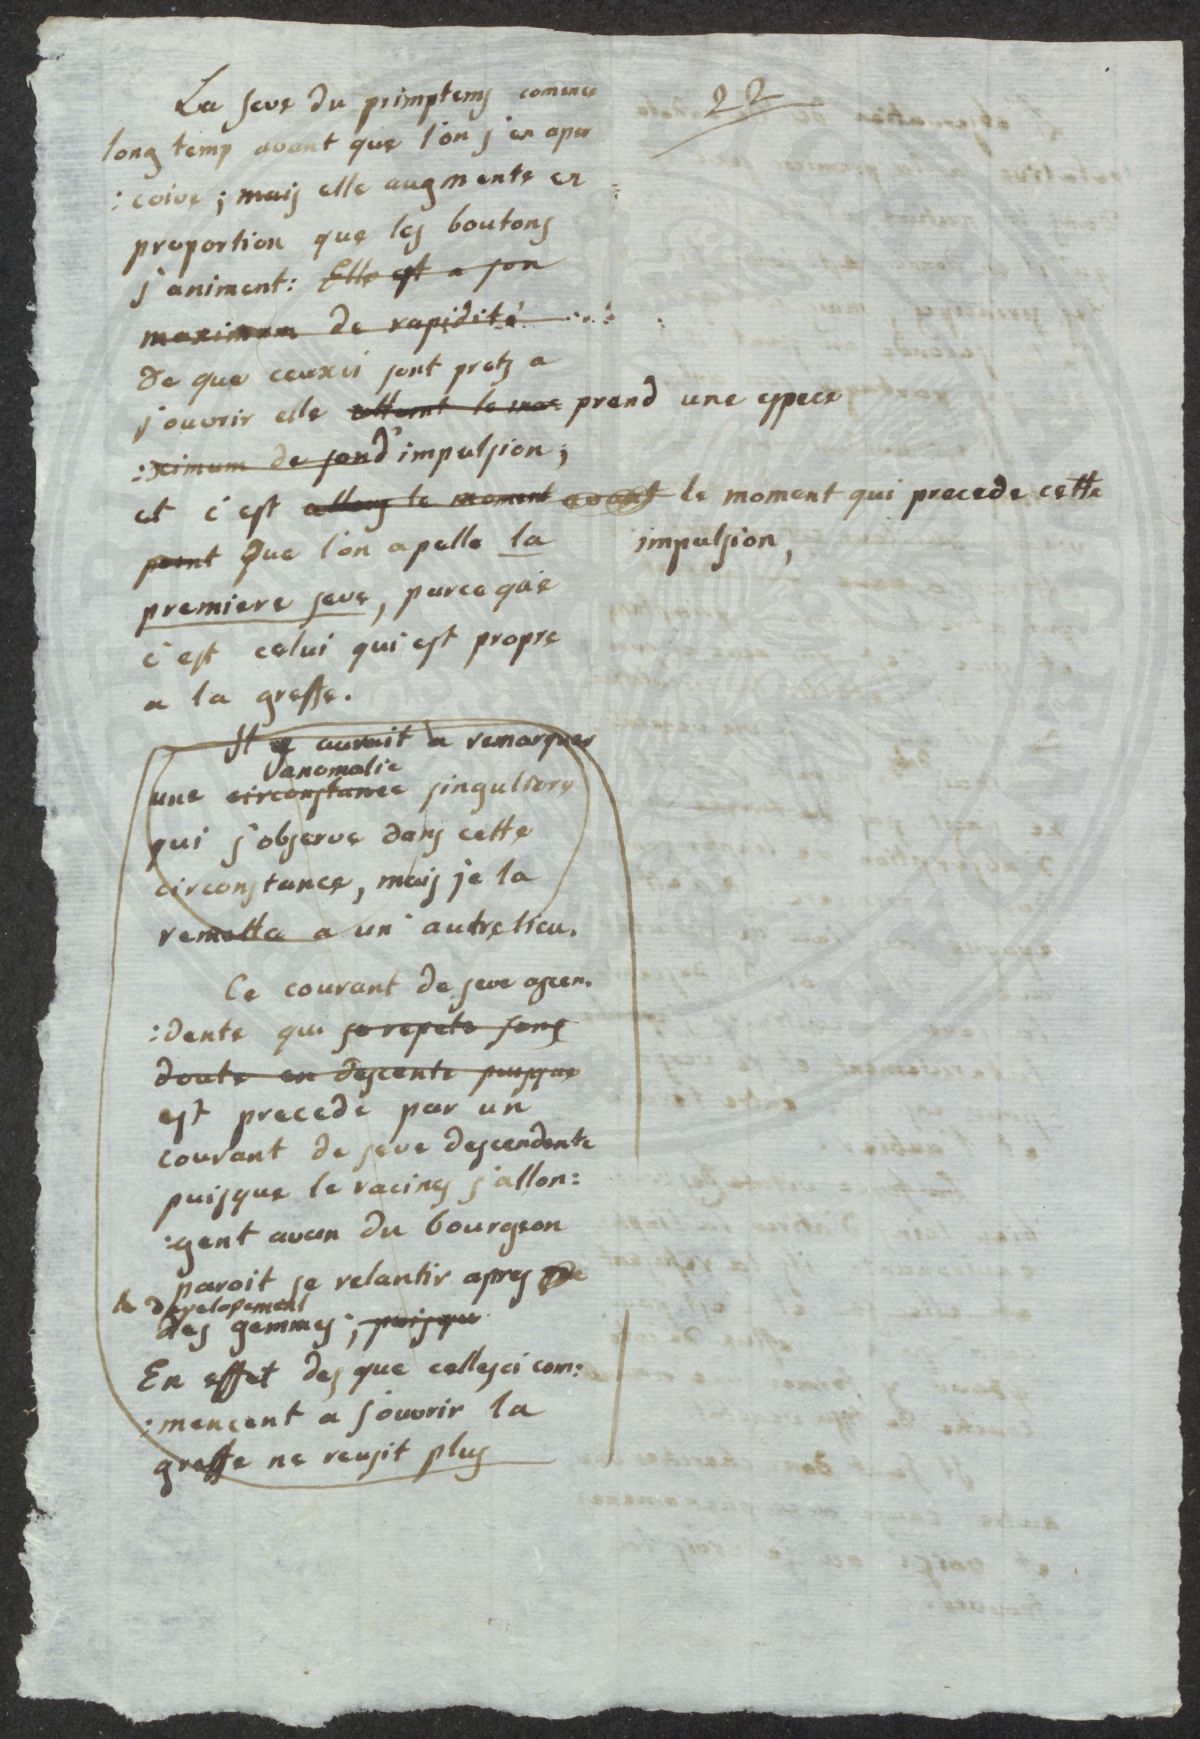 22
La seve du primptems comence
long temp avant que l'on s'en aper
:coive ; mais elle augmente en
proportion que les boutons
s'animent: Elle est a son
maximum de rapidité
De que ceuxci sont prets a
s'ouvrir elle atteint le max prend une espece
:ximum de son d'impulsion;
et c'est allors le moment avant le moment qui precede cette
impulsion,
point Que l'on apelle la
premiere seve, parce que
c'est celui qui est propre
a la greffe.
Il y aurait a remarquer
anomalie
une circonstance singuliere
qui s'observe dans cette
circonstance, mais je la
remetta a un autre lieu.
Ce courant de seve ascen.
:dente qui se repete sans
doute en descente puisque
est precedé par un
courant de seve descendente
puisque le racines s'allon:
:gent avan du bourgeon
paroit se relantir apres
le developement
des gemmes ; puisque
En effet des que cellesci com:
:mencent a s'ouvrir la
greffe ne reusit plus